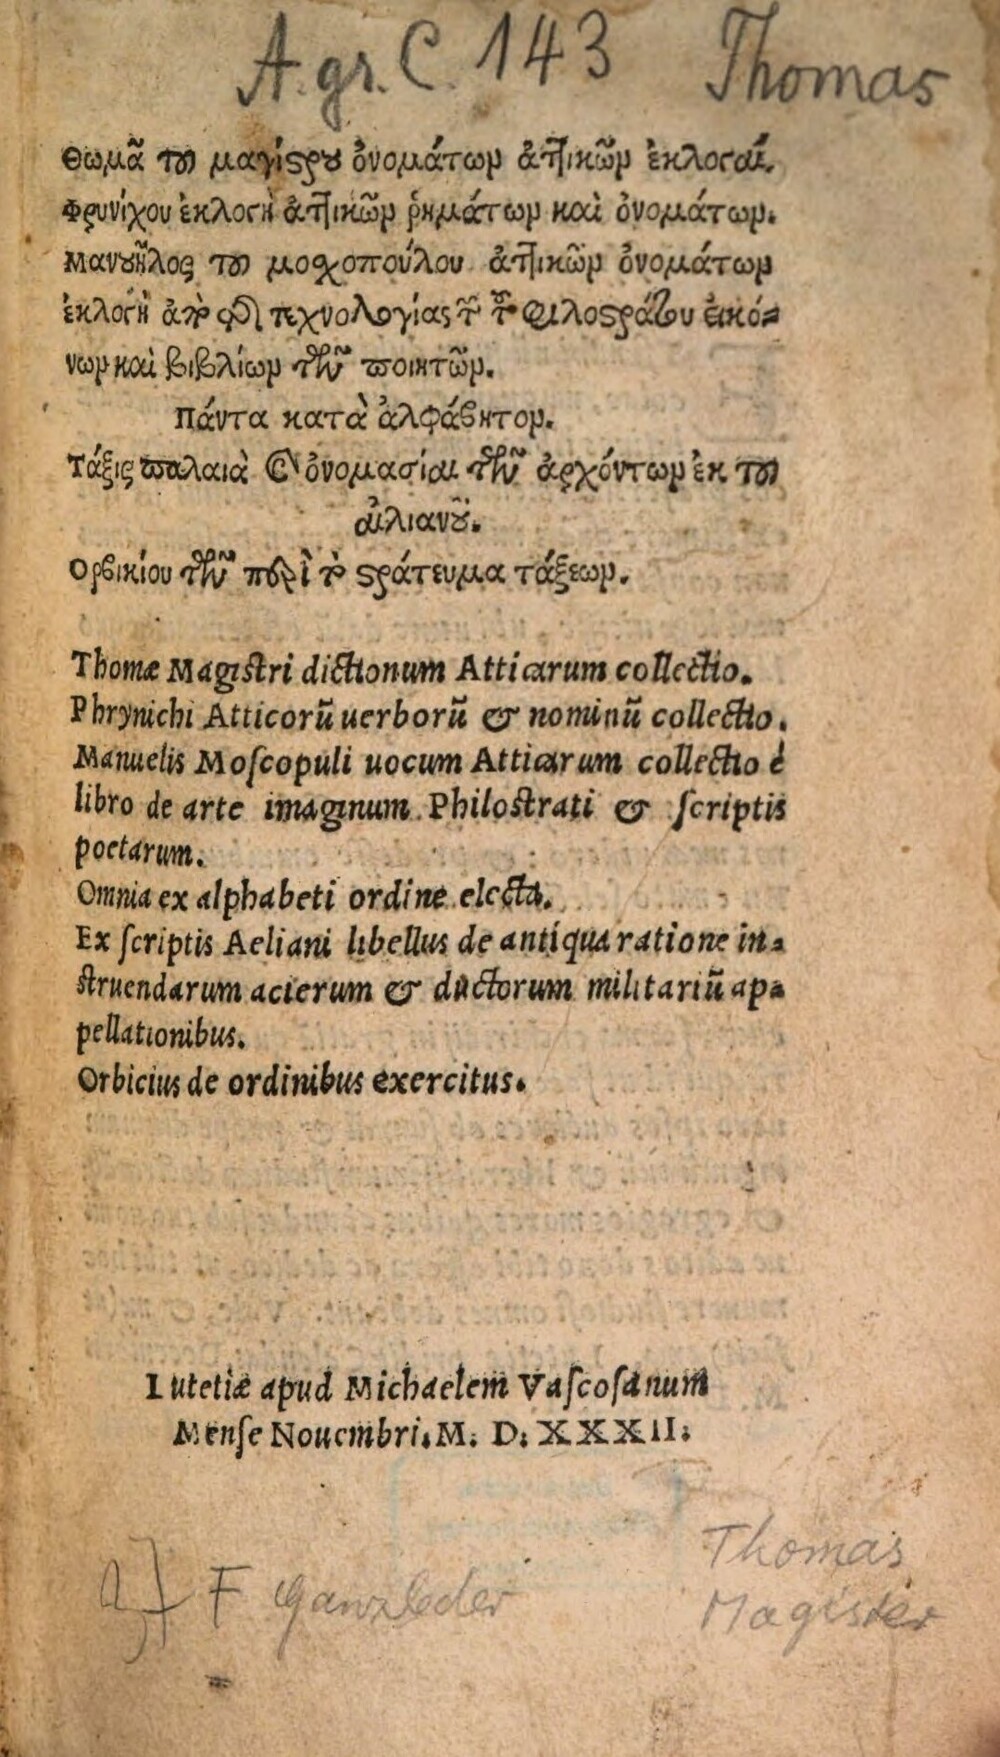 A. gr. C. 143 Thomas
Θωμᾶ τοῦ μαγίστρου ὀνομάτων ἀττικῶν ἐκλογαί.
Φρυνίχου ἐκλογὴ ἀττικῶν ῥημάτων καὶ ὀνομάτων.
Μανουῆλος τοῦ μοσχοπούλου ἀττικῶν ὀνομάτων
ἐκλογὴ ἀπὸ τῆς τεχνολογίας τῶν τοῦ φιλοστράτου εἰκό-
νων καὶ βιβλίων τῶν ποιητῶν.
Πάντα κατὰ ἀλφάβητον.
Τάξις παλαιὰ καὶ ὀνομασίαι τῶν ἀρχόντων ἐκ τοῦ
αἰλιανοῦ.
Ορβικίου τῶν περὶ τὸ στράτευμα τάξεων.
Thomæ Magistri dictionum Atticarum collectio.
Phrynichi Atticorū uerborū & nominū collectio.
Manuelis Moſcopuli uocum Atticarum collectio è
libro de arte imaginum Philostrati & ſcriptis
poetarum.
Omnia ex alphabeti ordine electa.
Ex ſcriptis Aeliani libellus de antiqua ratione in-
struendarum acierum & ductorum militariū ap-
pellationibus.
Orbicius de ordinibus exercitus.
Lutetiæ apud Michaelem Vaſcoſanum
Menſe Nouembri. M. D. XXXII.
Thomas
F Ganzleder
Magister